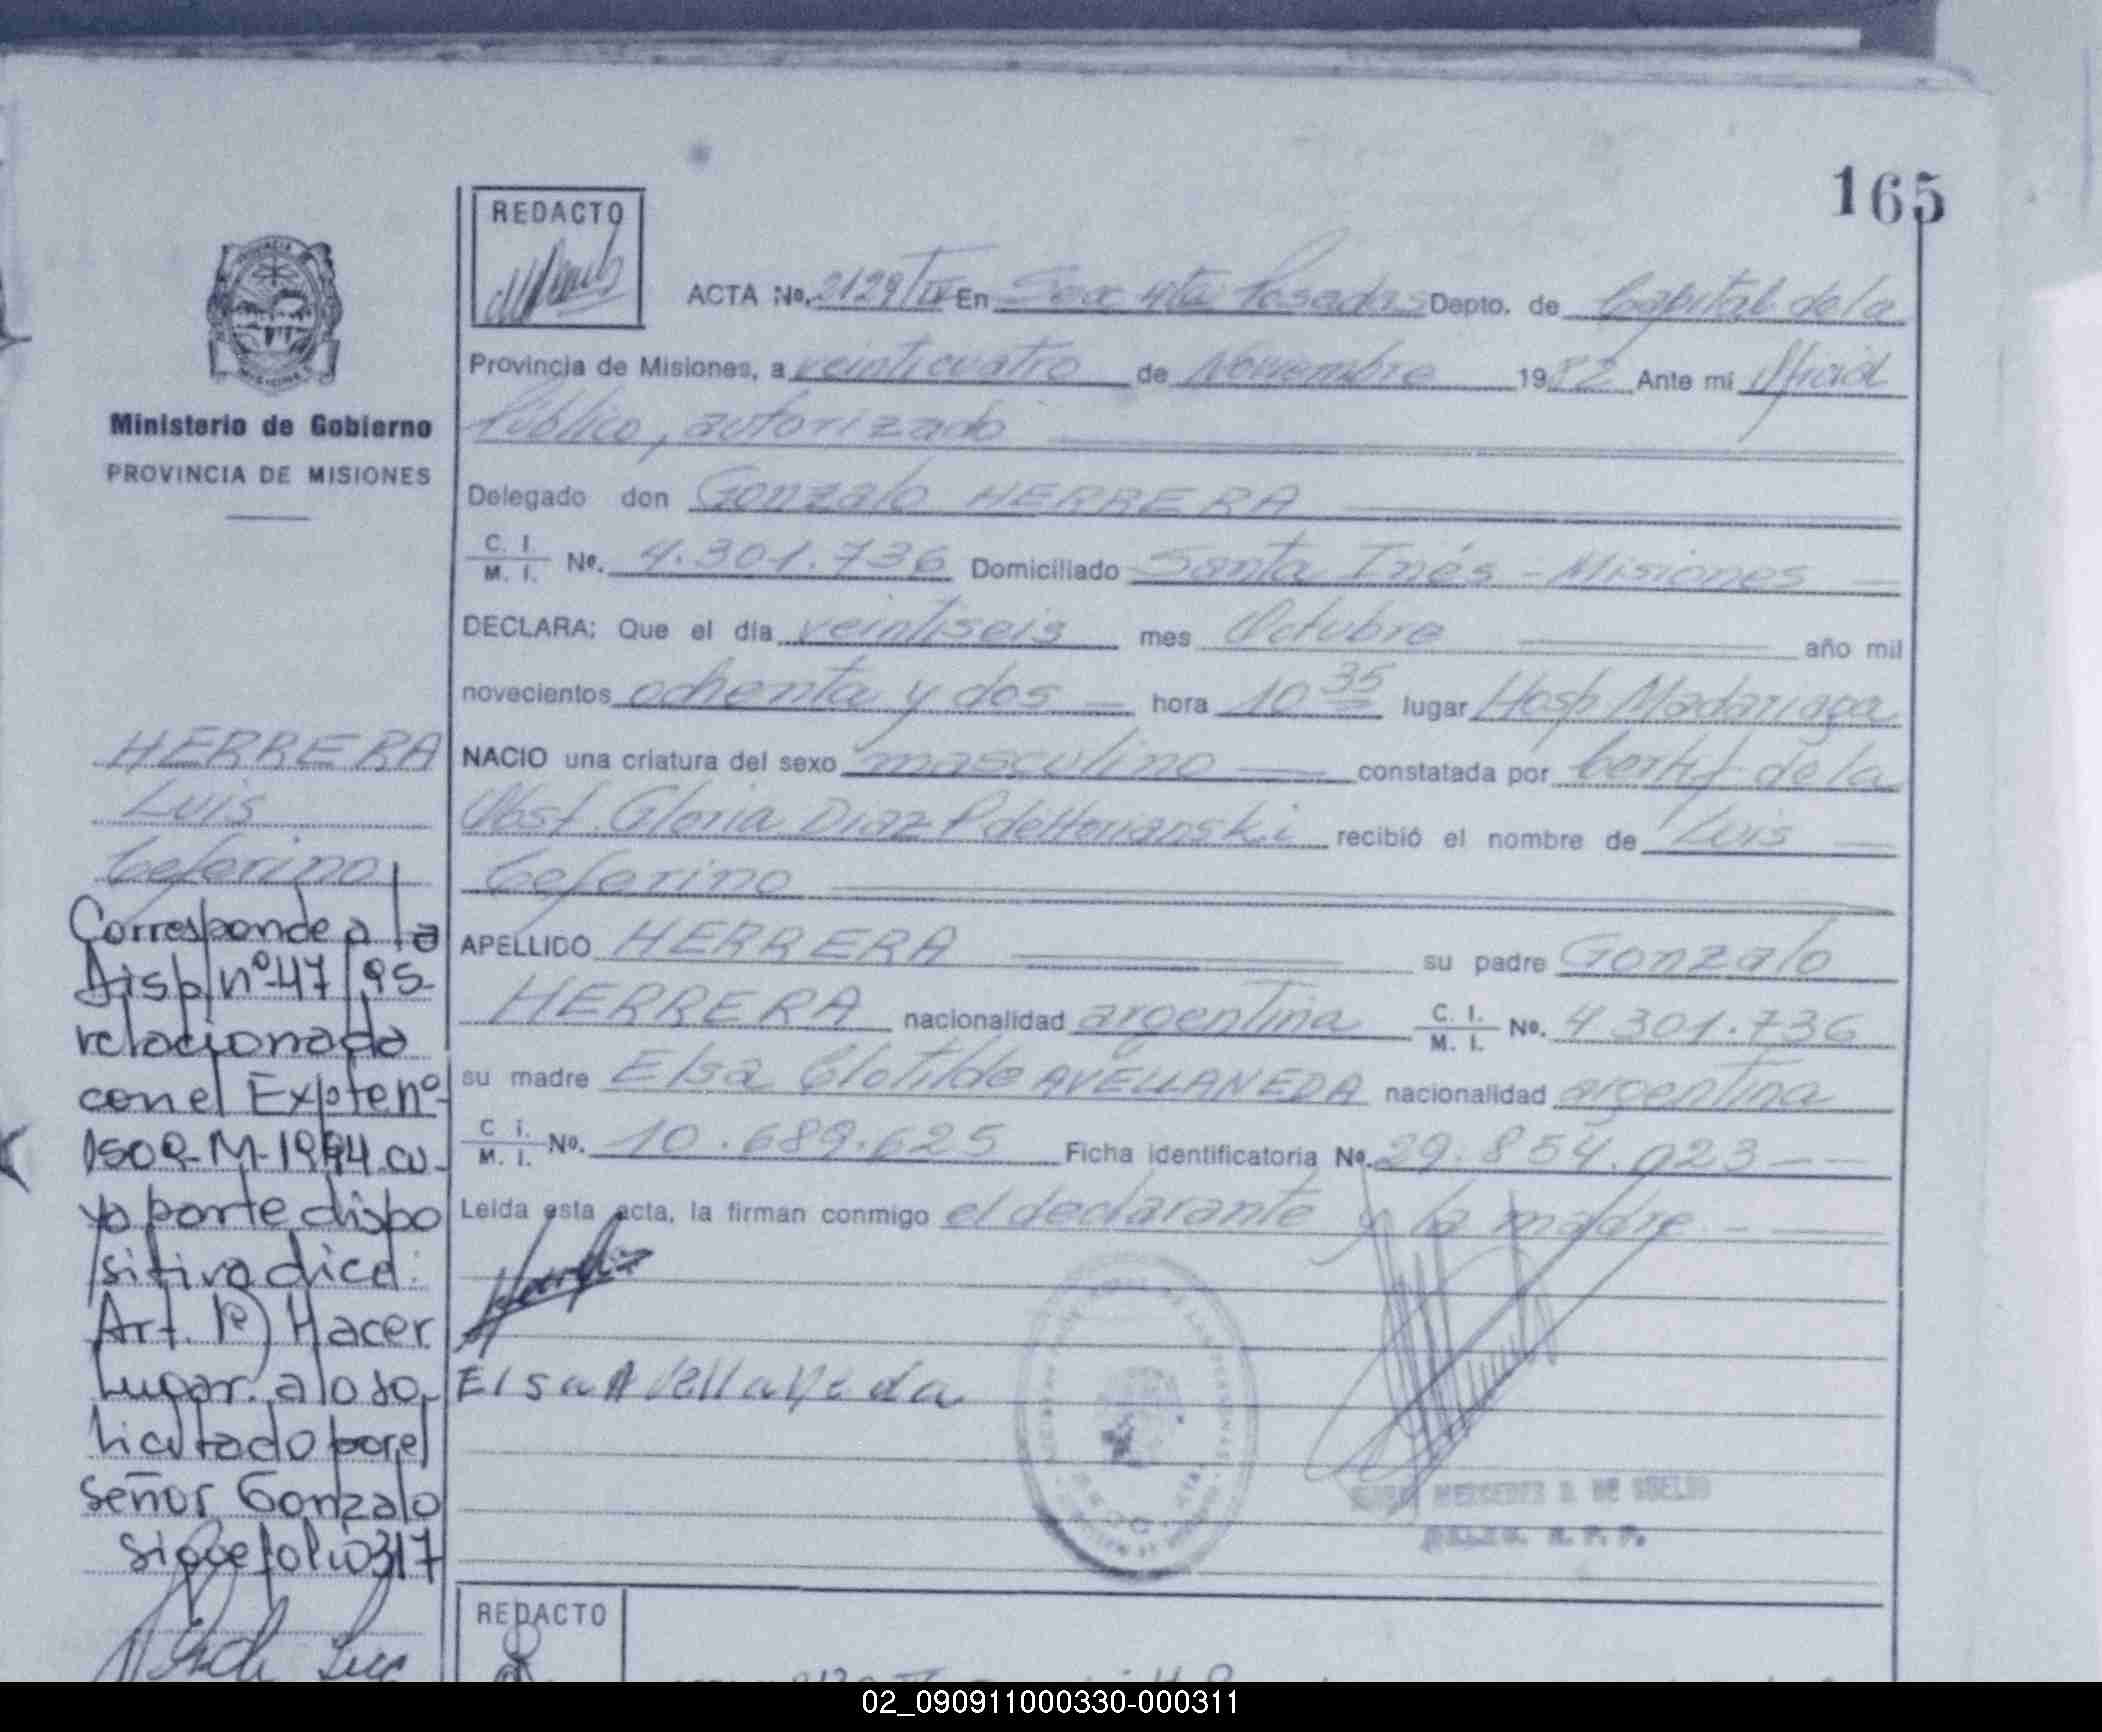 165
REDACTO
ACTA No. 2129/IV En Secc 4ta Posadas Depto. de Capital de la
Provincia de Misiones, a veinticuatro de Noviembre 1982 Ante mi Oficial
Público, autorizado
Ministerio de Gobierno
PROVINCIA DE MISIONES
Delegado don Gonzalo HERRERA
C. I. M. I. No. 4.301.736 Domiciliado Santa Inés - Misiones
DECLARA: Que el día veintiseis mes Octubre año mil
novecientos ochenta y dos hora 10 35 lugar Hosp Madariaga
NACIO una criatura del sexo masculino constatada por Certif de la
Obst. Gloria Diaz P de recibió el nombre de Luis
Ceferino
APELLIDO HERRERA su padre Gonzalo
HERRERA nacionalidad argentina C. I. M. I. No. 4.301.736
su madre Elsa Clotilde AVELLANEDA nacionalidad argentina
C. I. M. I. No. 10.689.625 Ficha identificatoria No. 29.854.023
Leida esta acta, la firman conmigo el declarante y la madre
Elsa Avellaneda
HERRERA
Luis
Ceferino
Corresponde a la
Disp nº 47/95
relacionada
con el Expte nº
M-1994 cu-
ya parte dispo
sitiva dice:
Art. 1º) Hacer
Lugar a lo so-
licitado por el
señor Gonzalo
sigue folio 317
REDACTO
02_090911000330-000311